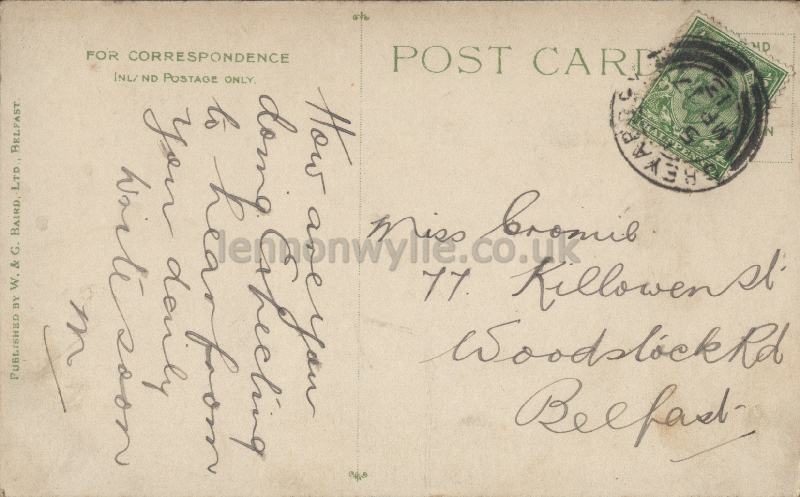 FOR CORRESPONDENCE
INLAND POSTAGE ONLY.
POST CARD
PUBLISHED BY W. & G. BAIRD, LTD., BELFAST.
How are you
doing Expecting
to hear from
you
write soon
M
Miss Cromie
77 Killowen St
Woodstock Rd
Belfast
GREYABBEY
5 PM
MR 7
13
HALFPENNY
lennonwylie.co.uk